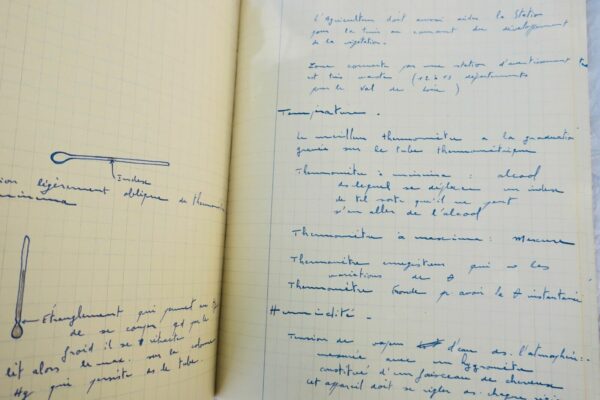 Index
légèrement oblique du thermom
minima
Étranglement qui permet au
de se couper qd par le
froid il se rétracte
lit alors le max. sur la colonne
Hg qui persiste ds. le tube.
L'Agriculteur doit aussi aider la Station
pour la tenir au courant du développement
de la végétation.
Zone couverte par une station d'avertissement
est très vaste (12 à 13 départements
pour le Val de Loire)
Température.
Le meilleur thermomètre a la graduat
gravée sur le tube thermométrique
Thermomètre à minima : alcool
ds. lequel se déplace un index
de tel sorte qu'il ne peut
s'en aller de l'alcool
Thermomètre à maxima : Mercure
Thermomètre enregistreur qui les
variations de θ
Thermomètre fronde pr avoir la θ instantané
Humidité.
Tension de vapeur d'eau ds. l'atmosphère :
mesurée avec un hygromètre
constitué d'un faisceau de cheveux
cet appareil doit se régler